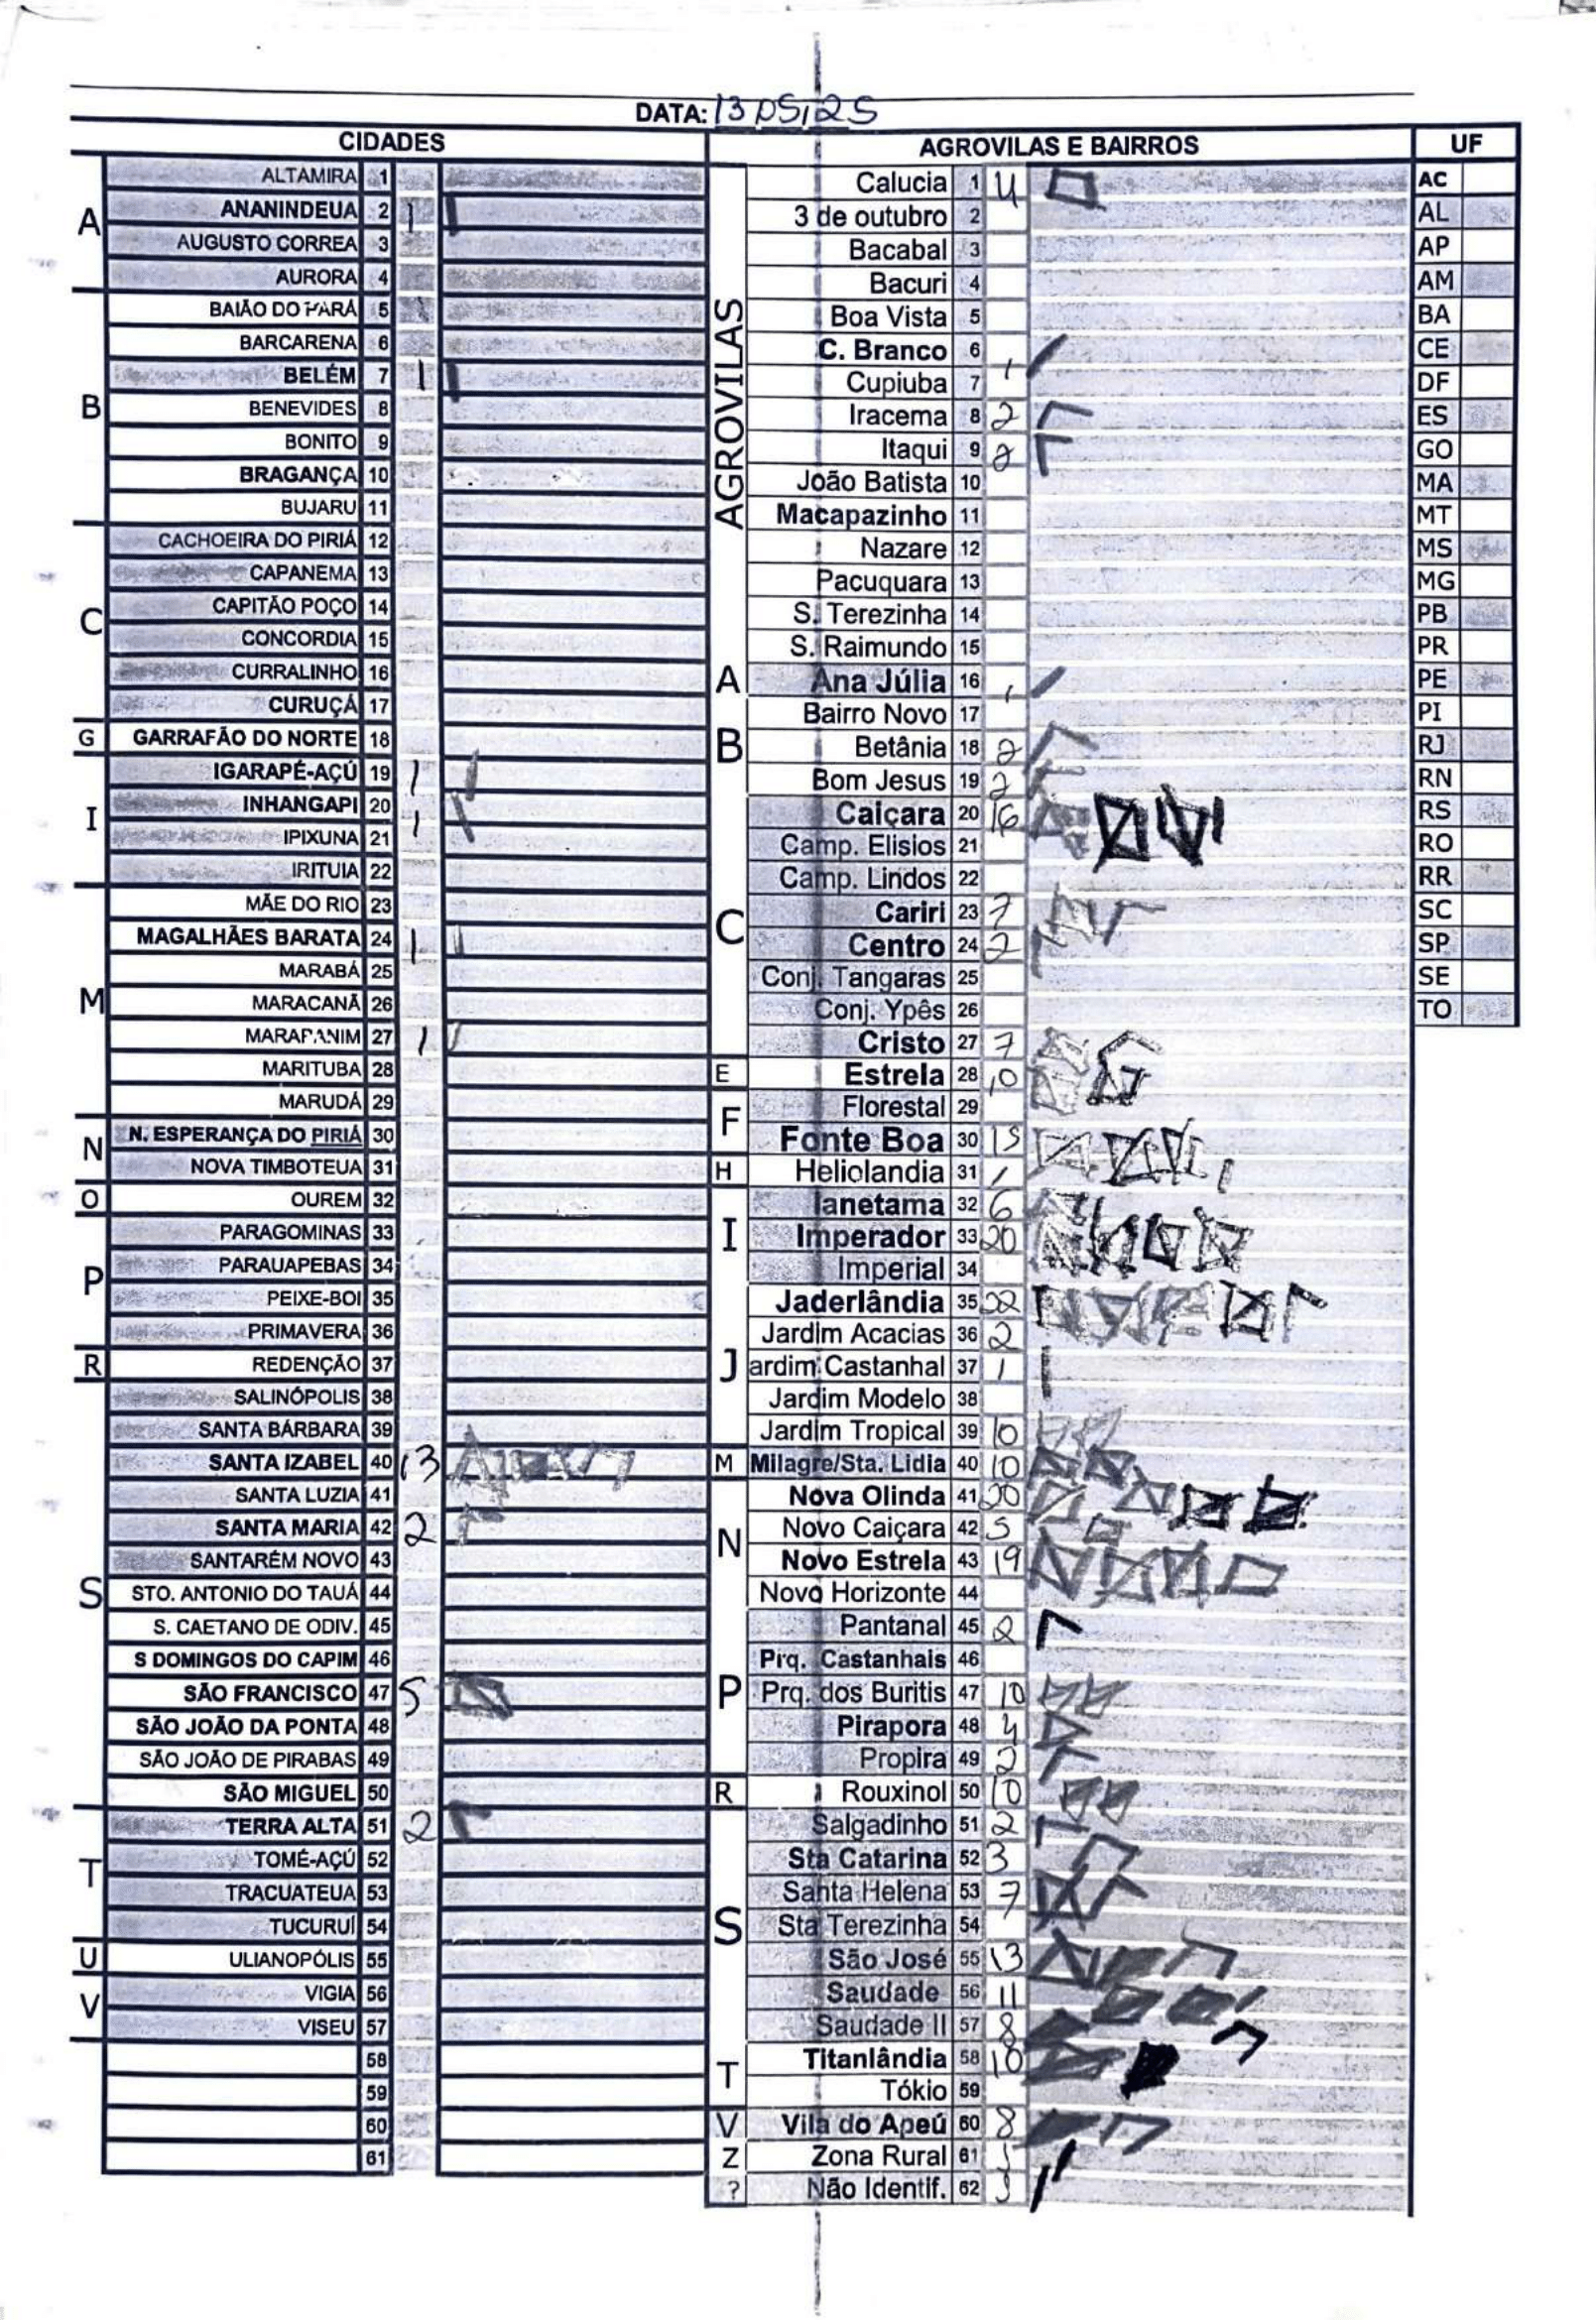 DATA: 13 05 25
CIDADES
A
ALTAMIRA 1
ANANINDEUA 2 1
AUGUSTO CORREA 3
AURORA 4
B
BAIÃO DO PARÁ 5
BARCARENA 6
BELÉM 7 1
BENEVIDES 8
BONITO 9
BRAGANÇA 10
BUJARU 11
C
CACHOEIRA DO PIRIÁ 12
CAPANEMA 13
CAPITÃO POÇO 14
CONCORDIA 15
CURRALINHO 16
CURUÇÁ 17
G
GARRAFÃO DO NORTE 18
I
IGARAPÉ-AÇÚ 19 1
INHANGAPI 20
IPIXUNA 21 1
IRITUIA 22
M
MÃE DO RIO 23
MAGALHÃES BARATA 24 1
MARABÁ 25
MARACANÃ 26
MARAPANIM 27 1
MARITUBA 28
MARUDÁ 29
N
N. ESPERANÇA DO PIRIÁ 30
NOVA TIMBOTEUA 31
O
OUREM 32
P
PARAGOMINAS 33
PARAUAPEBAS 34
PEIXE-BOI 35
PRIMAVERA 36
R
REDENÇÃO 37
S
SALINÓPOLIS 38
SANTA BÁRBARA 39
SANTA IZABEL 40 13
SANTA LUZIA 41
SANTA MARIA 42 2
SANTARÉM NOVO 43
STO. ANTONIO DO TAUÁ 44
S. CAETANO DE ODIV. 45
S DOMINGOS DO CAPIM 46
SÃO FRANCISCO 47 5
SÃO JOÃO DA PONTA 48
SÃO JOÃO DE PIRABAS 49
SÃO MIGUEL 50
T
TERRA ALTA 51 2
TOMÉ-AÇÚ 52
TRACUATEUA 53
TUCURUÍ 54
U
ULIANOPÓLIS 55
V
VIGIA 56
VISEU 57
58
59
60
61
AGROVILAS E BAIRROS
AGROVILAS
Calucia 1 4
3 de outubro 2
Bacabal 3
Bacuri 4
Boa Vista 5
C. Branco 6
Cupiuba 7 1
Iracema 8 2
Itaqui 9 2
João Batista 10
Macapazinho 11
Nazare 12
Pacuquara 13
S. Terezinha 14
S. Raimundo 15
A
Ana Júlia 16 1
Bairro Novo 17
B
Betânia 18 2
Bom Jesus 19 2
C
Caiçara 20 16
Camp. Elisios 21
Camp. Lindos 22
Cariri 23 7
Centro 24 2
Conj. Tangaras 25
Conj. Ypês 26
Cristo 27 7
E
Estrela 28 10
F
Florestal 29
Fonte Boa 30 15
H
Heliolandia 31 1
I
Ianetama 32 6
Imperador 33 20
Imperial 34
J
Jaderlândia 35 22
Jardim Acacias 36 2
ardim Castanhal 37 1
Jardim Modelo 38
Jardim Tropical 39 10
M
Milagre/Sta. Lidia 40 10
N
Nova Olinda 41 20
Novo Caiçara 42 5
Novo Estrela 43 19
Novo Horizonte 44
P
Pantanal 45 2
Prq. Castanhais 46
Prq. dos Buritis 47 10
Pirapora 48 4
Propira 49 2
R
Rouxinol 50 10
S
Salgadinho 51 2
Sta Catarina 52 3
Santa Helena 53 7
Sta Terezinha 54
São José 55 13
Saudade 56 11
Saudade II 57 8
T
Titanlândia 58 10
Tókio 59
V
Vila do Apeú 60 8
Z
Zona Rural 61
?
Não Identif. 62
UF
AC
AL
AP
AM
BA
CE
DF
ES
GO
MA
MT
MS
MG
PB
PR
PE
PI
RJ
RN
RS
RO
RR
SC
SP
SE
TO